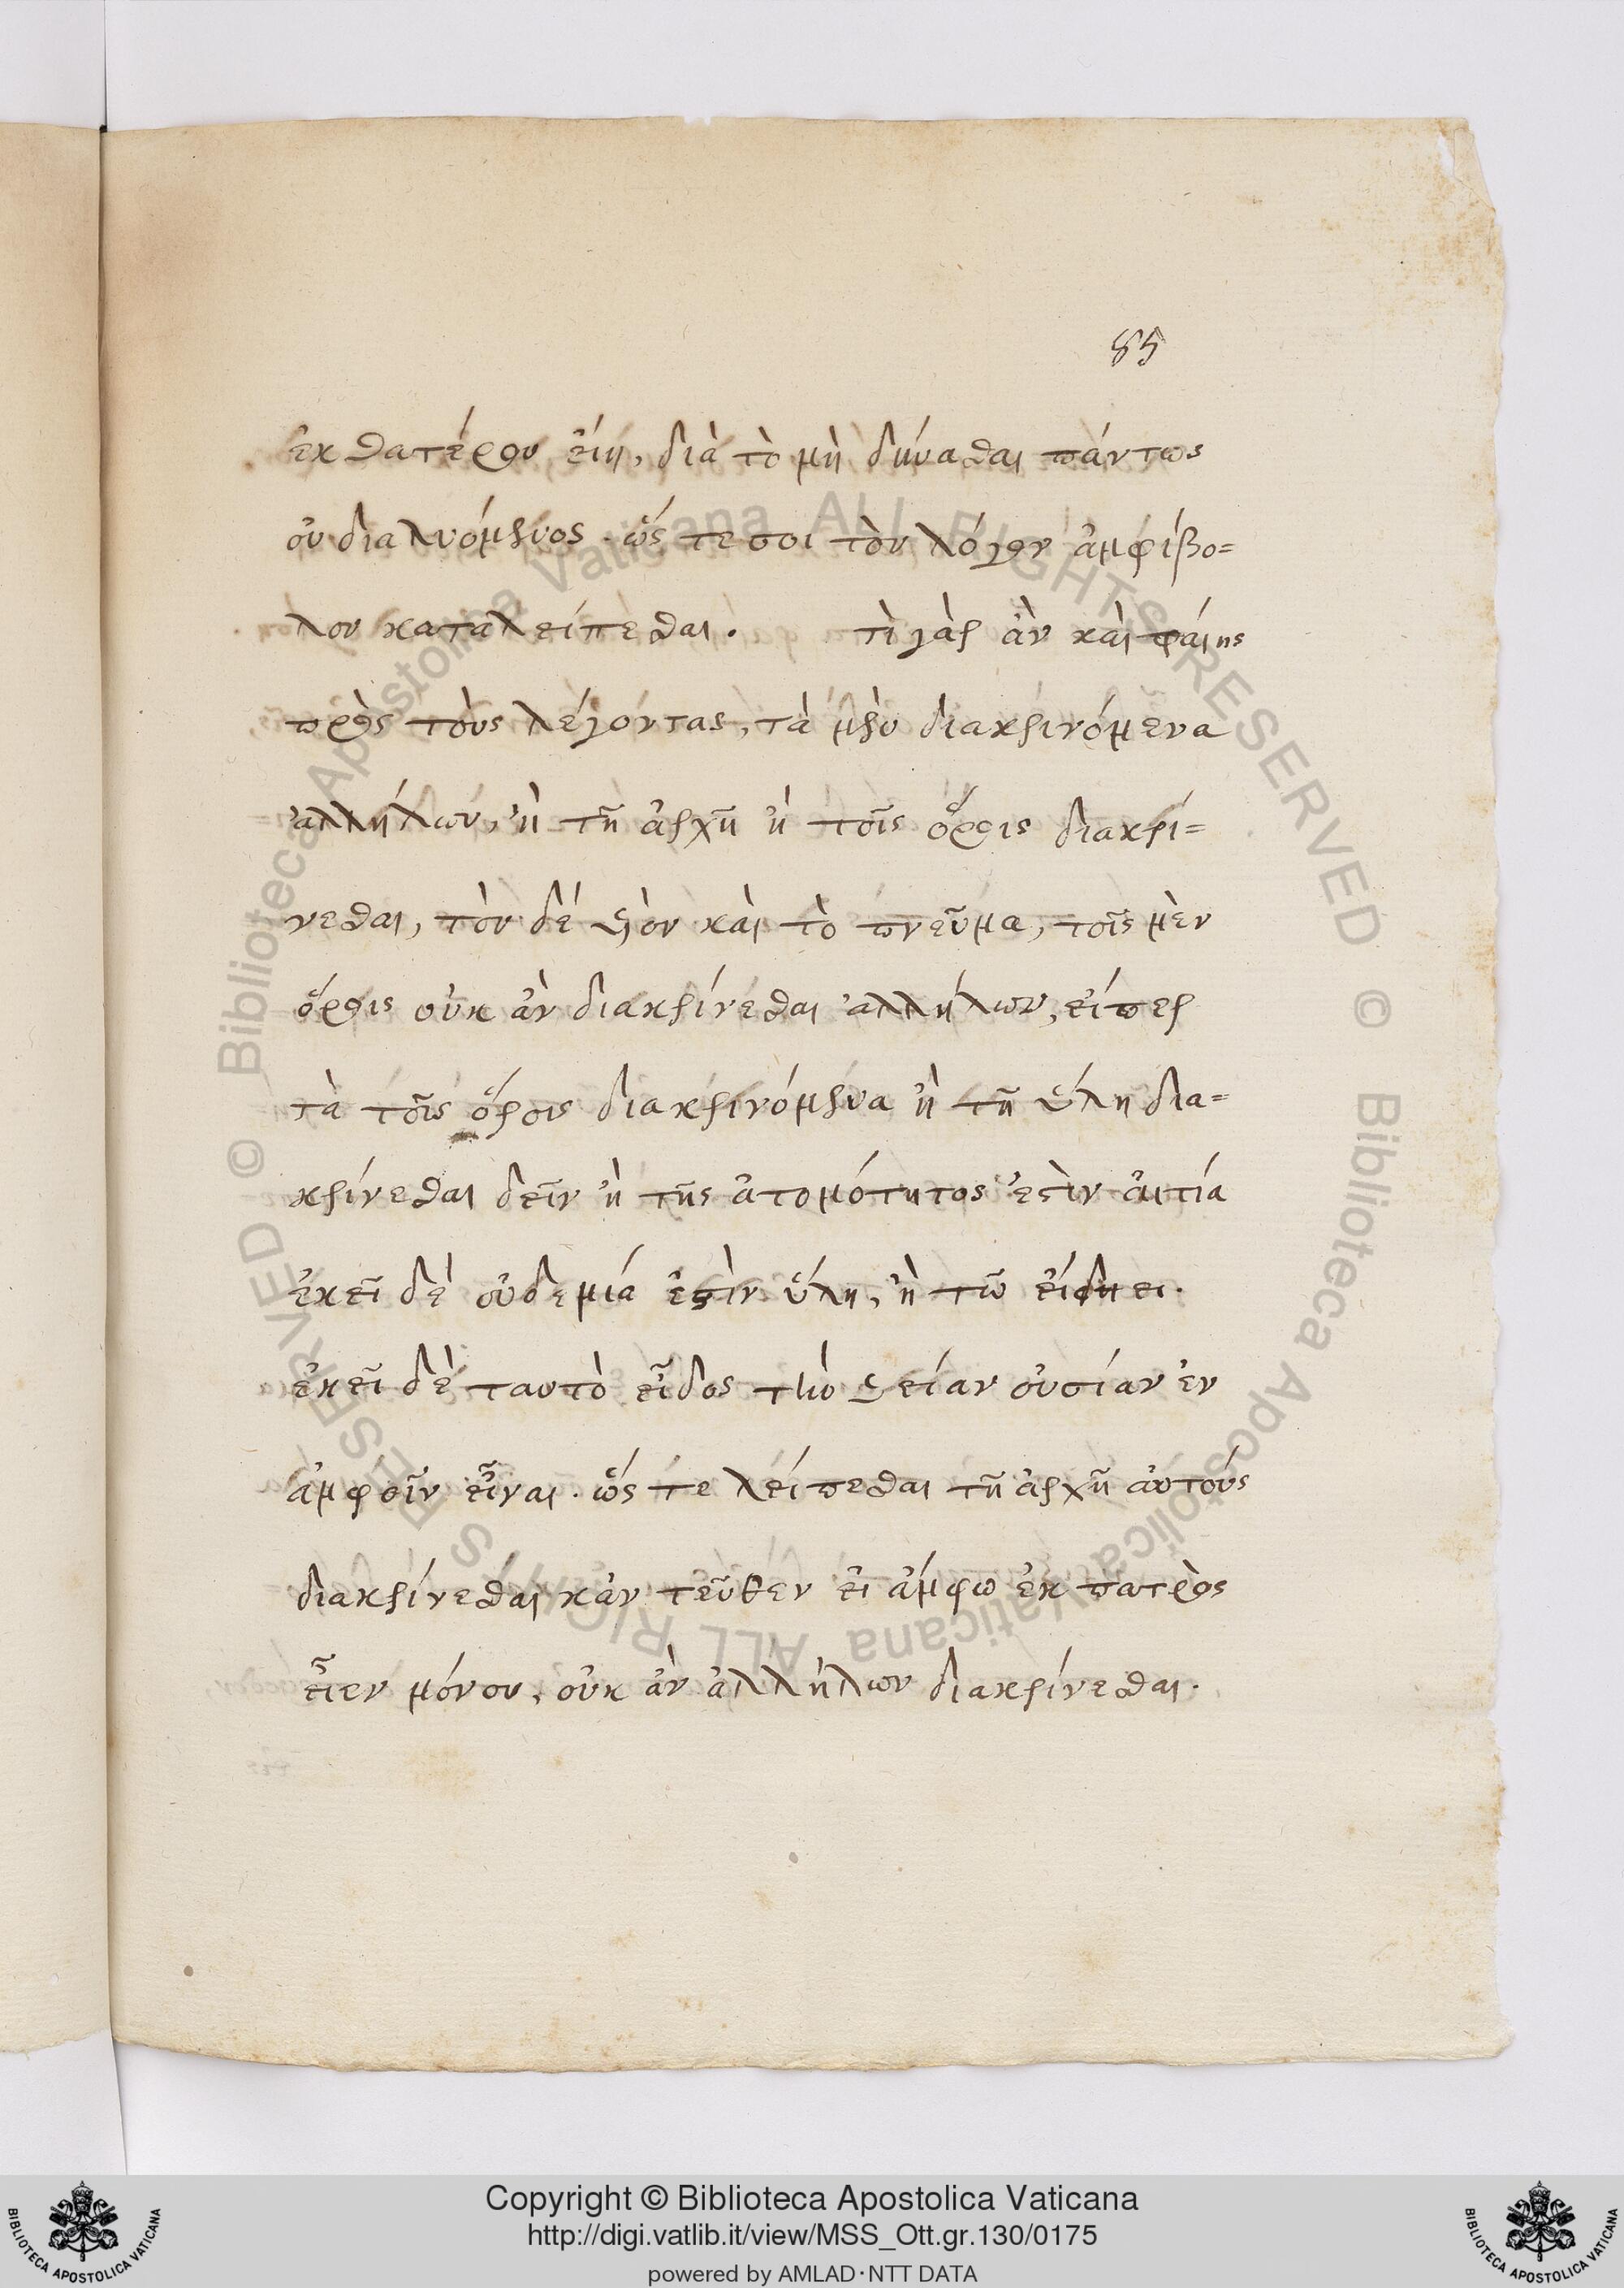 85
ἐκ θατέρου εἴη, διὰ τὸ μὴ δύνασθαι πάντως
οὐ διαλυόμενος. ὥς τε σοι τὸν λόγον ἀμφίβο=
λον καταλείπεσθαι. τὶ γὰρ ἂν καὶ φαίης
πρὸς τοὺς λέγοντας, τὰ μὲν διακρινόμενα
ἀλλήλων, ἢ τῆ ἀρχῆ ἢ τοῖς ὅροις διακρί=
νεσθαι, τὸν δὲ υἱὸν καὶ τὸ πνεῦμα, τοῖς μὲν
ὅροις οὐκ ἂν διακρίνεσθαι ἀλλήλων, εἴπερ
τὰ τοῖς ὅροις διακρινόμενα ἢ τῆ ὕλη δια=
κρίνεσθαι δεῖν ἢ τῆς ἀτομότητος ἐστὶν αἰτία
ἐκεῖ δὲ οὐδεμία ἐστὶν ὕλη, ἢ τῶ εἴδει.
ἐκεῖ δὲ ταυτὸ εἶδος τὴν θείαν οὐσίαν ἐν
ἀμφοῖν εἶναι. ὥς τε λείπεσθαι τῆ ἀρχῆ αὐτοὺς
διακρίνεσθαι κἀν τεῦθεν εἰ ἄμφω ἐκ πατρὸς
εἶεν μόνου, οὐκ ἂν ἀλλήλων διακρίνεσθαι.
Copyright © Biblioteca Apostolica Vaticana
http://digi.vatlib.it/view/MSS_Ott.gr.130/0175
powered by AMLAD·NTT DATA
BIBLIOTECA APOSTOLICA VATICANA
BIBLIOTECA APOSTOLICA VATICANA
© Biblioteca Apostolica Vaticana ALL RIGHTS RESERVED © Biblioteca Apostolica Vaticana ALL RIGHTS RESERVED